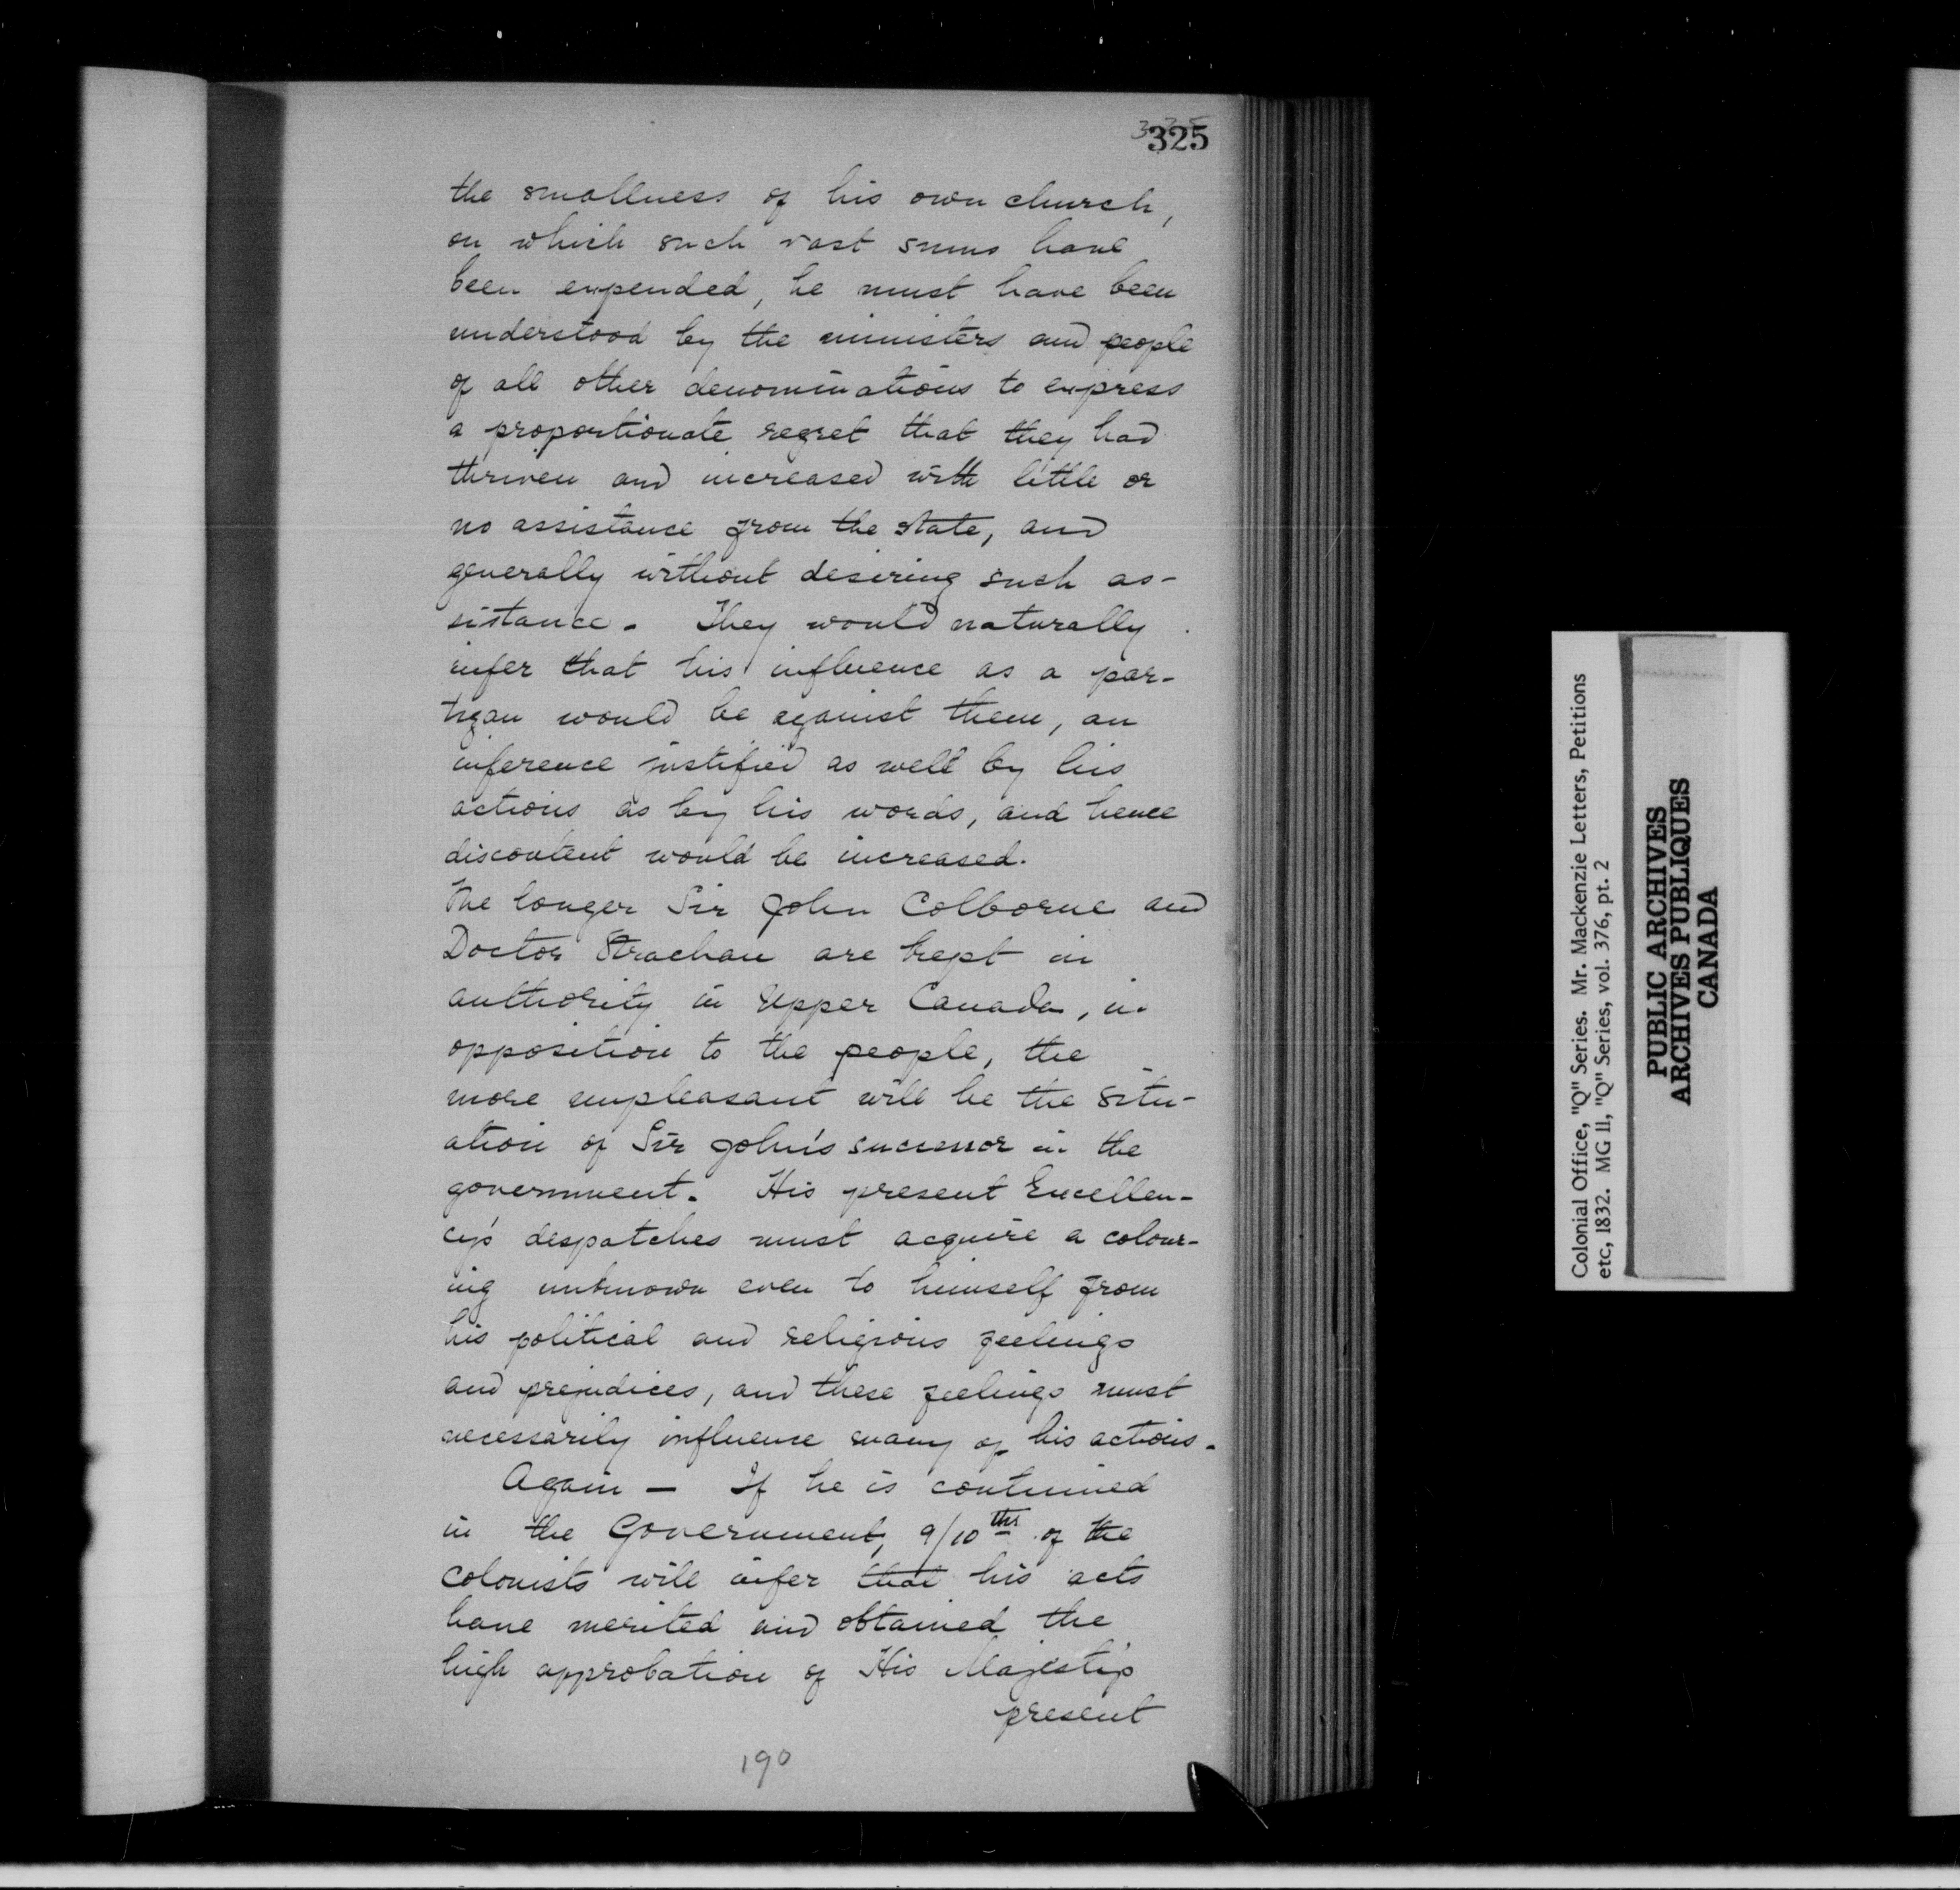 325
the smallness of his own church,
on which such vast sums have
been expended, he must have been
understood by the ministers and people
of all other denominations to express
a proportionate regret that they had
thriven and increased with little or
no assistance from the state, and
generally without desiring such as-
sistance. They would naturally
infer that his influence as a par-
tizan would be against them, an
inference justified as well by his
actions as by his words, and hence
discontent would be increased.
The longer Sir John Colborne and
Doctor Strachan are kept in
authority in Upper Canada, in
opposition to the people, the
more unpleasant will be the situ-
ation of Sir John's successor in the
government. His present Excellen-
cy's despatches must acquire a colour-
ing unknown even to himself from
his political and religious feelings
and prejudices, and these feelings must
necessarily influence many of his actions.
Again — If he is continued
in the Government, 9/10ths of the
colonists will infer that his acts
have merited and obtained the
high approbation of His Majesty's
present
190
Colonial Office, "Q" Series. Mr. Mackenzie Letters, Petitions
etc, 1832. MG 11, "Q" Series, vol. 376, pt. 2
PUBLIC ARCHIVES
ARCHIVES PUBLIQUES
CANADA